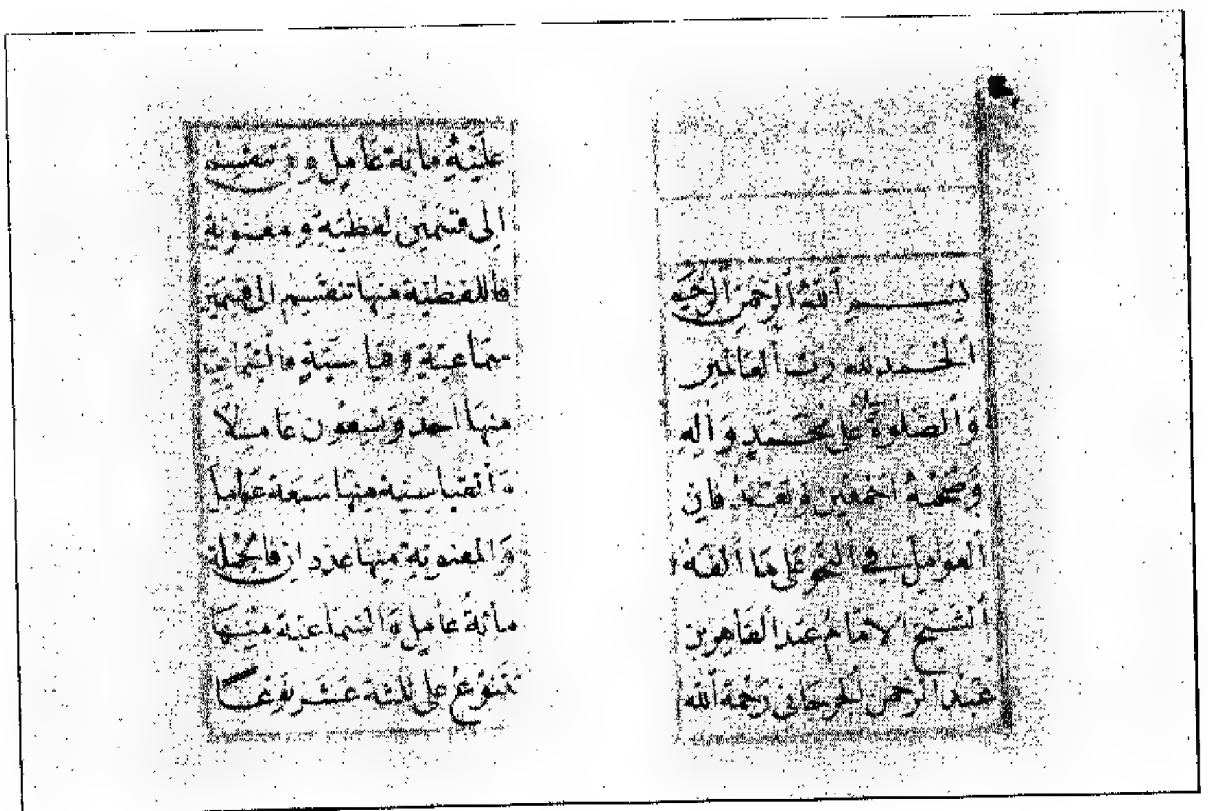 بسم الله الرحمن الرحيم
الحمد لله رب العالمين
والصلوة على محمد واله
وصحبه اجمعين وبعد فان
العوامل في النحو على ما الفه
الشيخ الامام عبد القاهر بن
عبد الرحمن الجرجاني رحمة الله
عليه مائة عامل و تنقسم
الى قسمين لفظية و معنوية
فاللفظية منها تنقسم الى قسمين
سماعية و قياسية فالسماعية
منها احد وتسعون عاملا
والقياسية منها سبعة عوامل
والمعنوية منها عددان فالجملة
مائة عامل والسماعية منها
تتنوع على ثلثة عشر نوعا